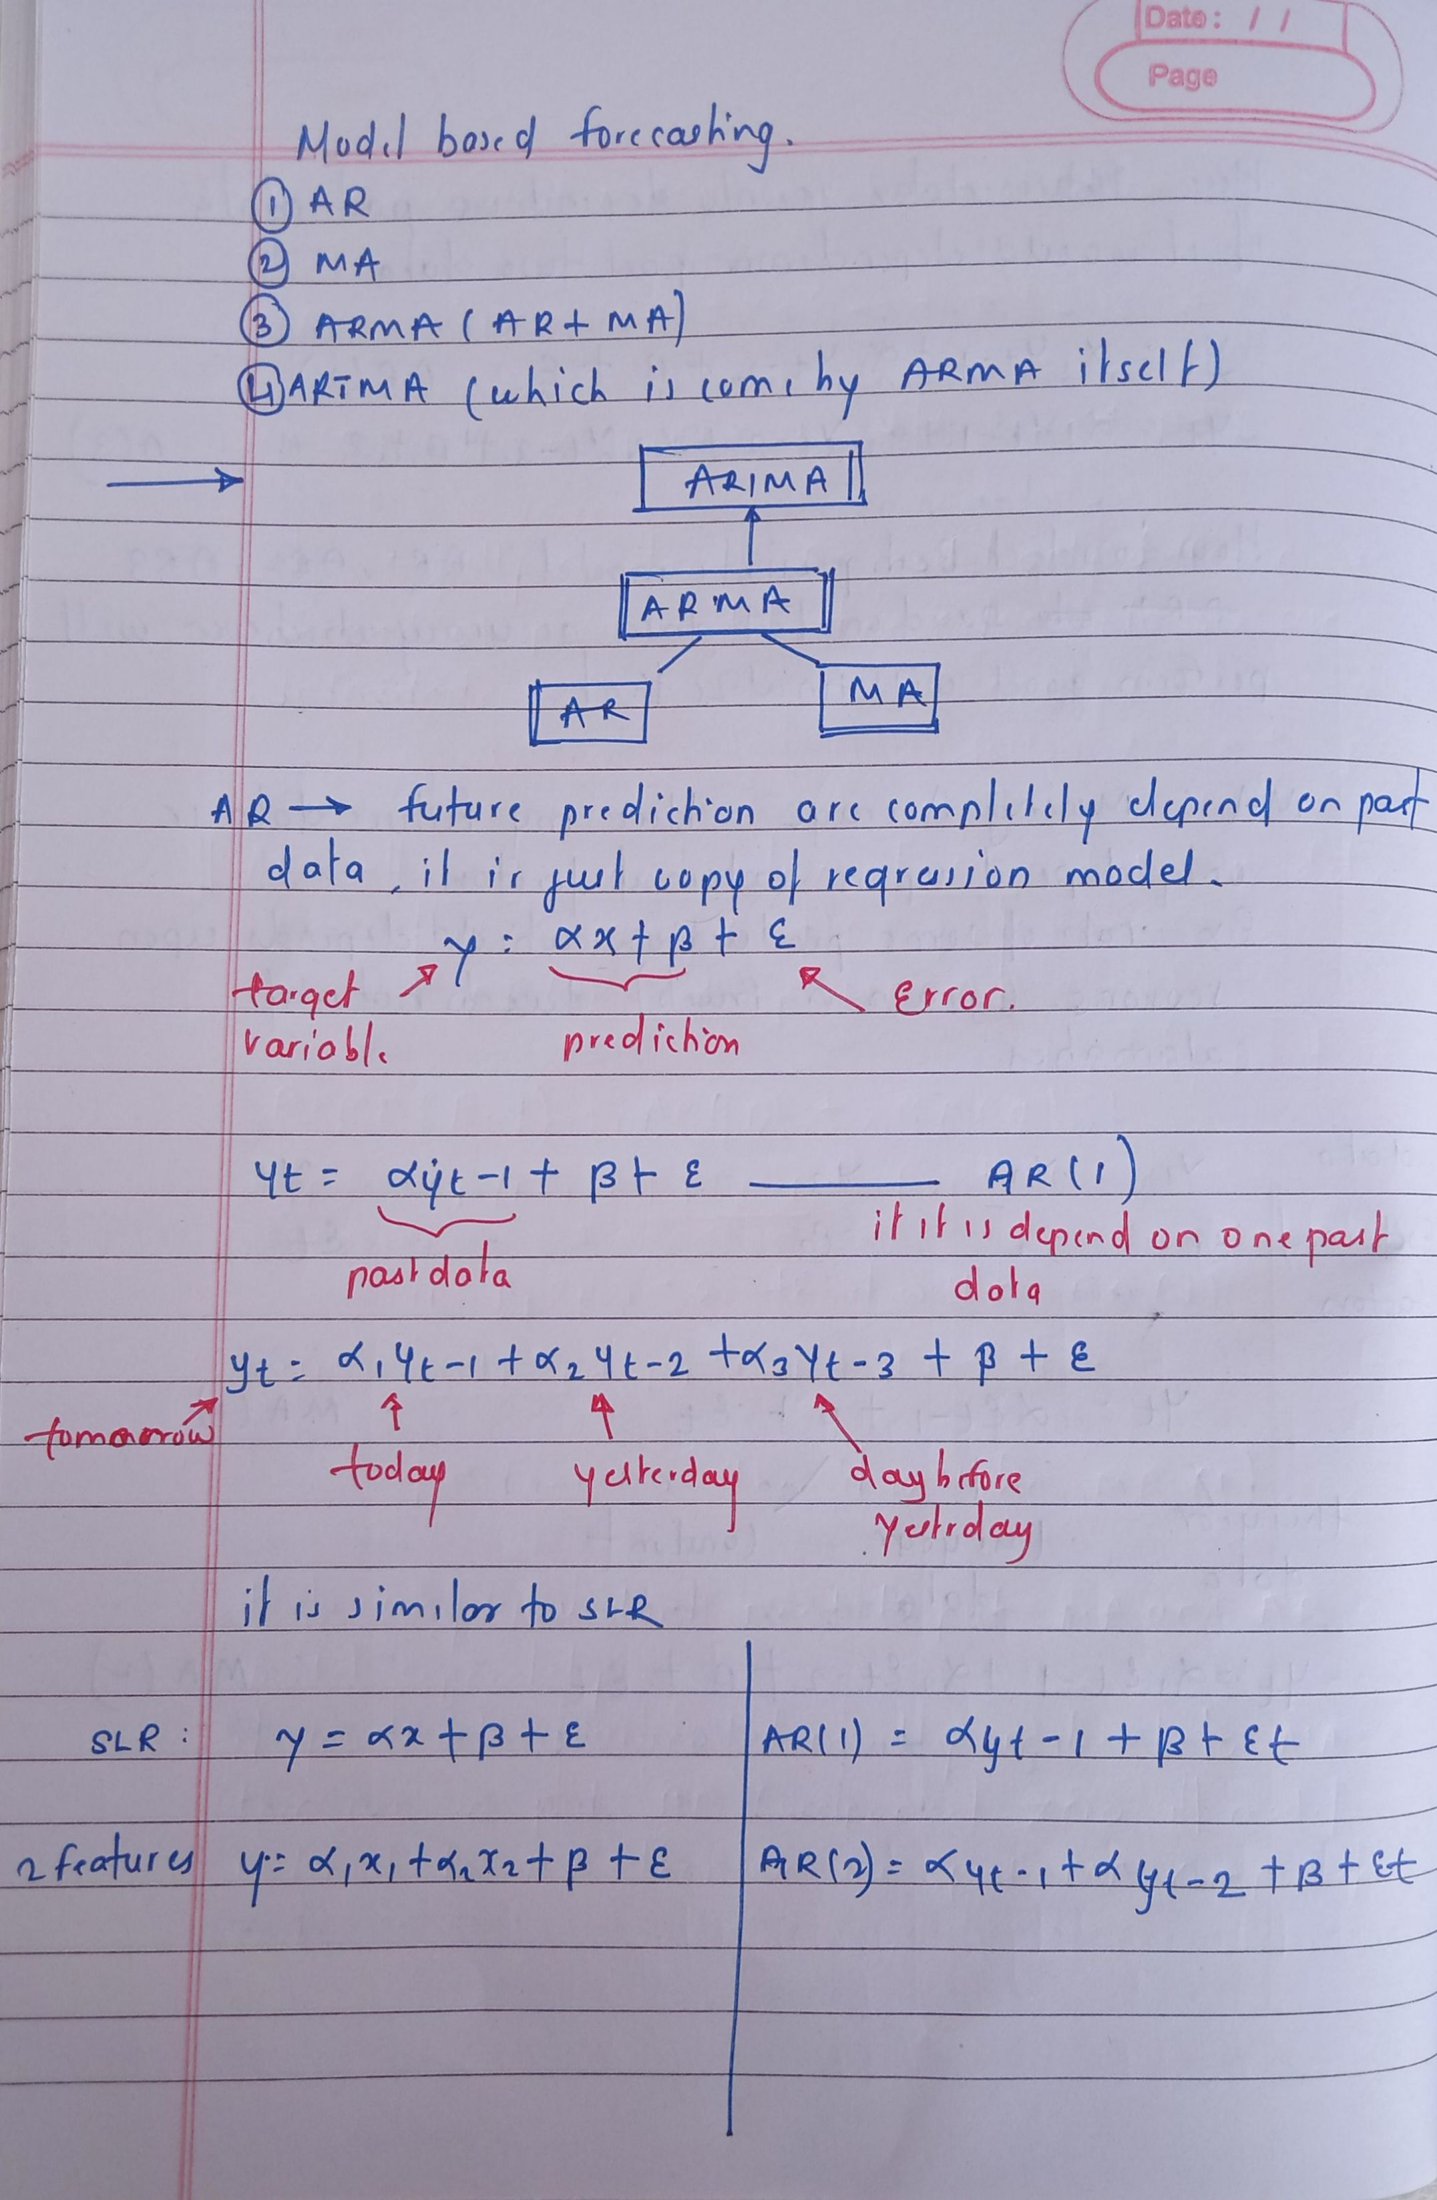 Date : / /
Page
Model based forecasting.
① AR
② MA
③ ARMA ( AR + MA)
④ ARIMA (which is come by ARMA itself)
→
ARIMA
ARMA
AR
MA
AR → future prediction are completely depend on past
data, it is just copy of regression model.
y = αx + β + ε
target variable
prediction
Error.
yt = αyt-1 + β + ε ——— AR(1)
past data
if it is depend on one past
data
yt = α1yt-1 + α2yt-2 + α3yt-3 + β + ε
tomorrow
today
yesterday
day before
yestrday
it is similar to SLR
SLR : y = αx + β + ε
AR(1) = αyt-1 + β + εt
2 features y = α1x1 + α2x2 + β + ε
AR(2) = αyt-1 + αyt-2 + β + εt